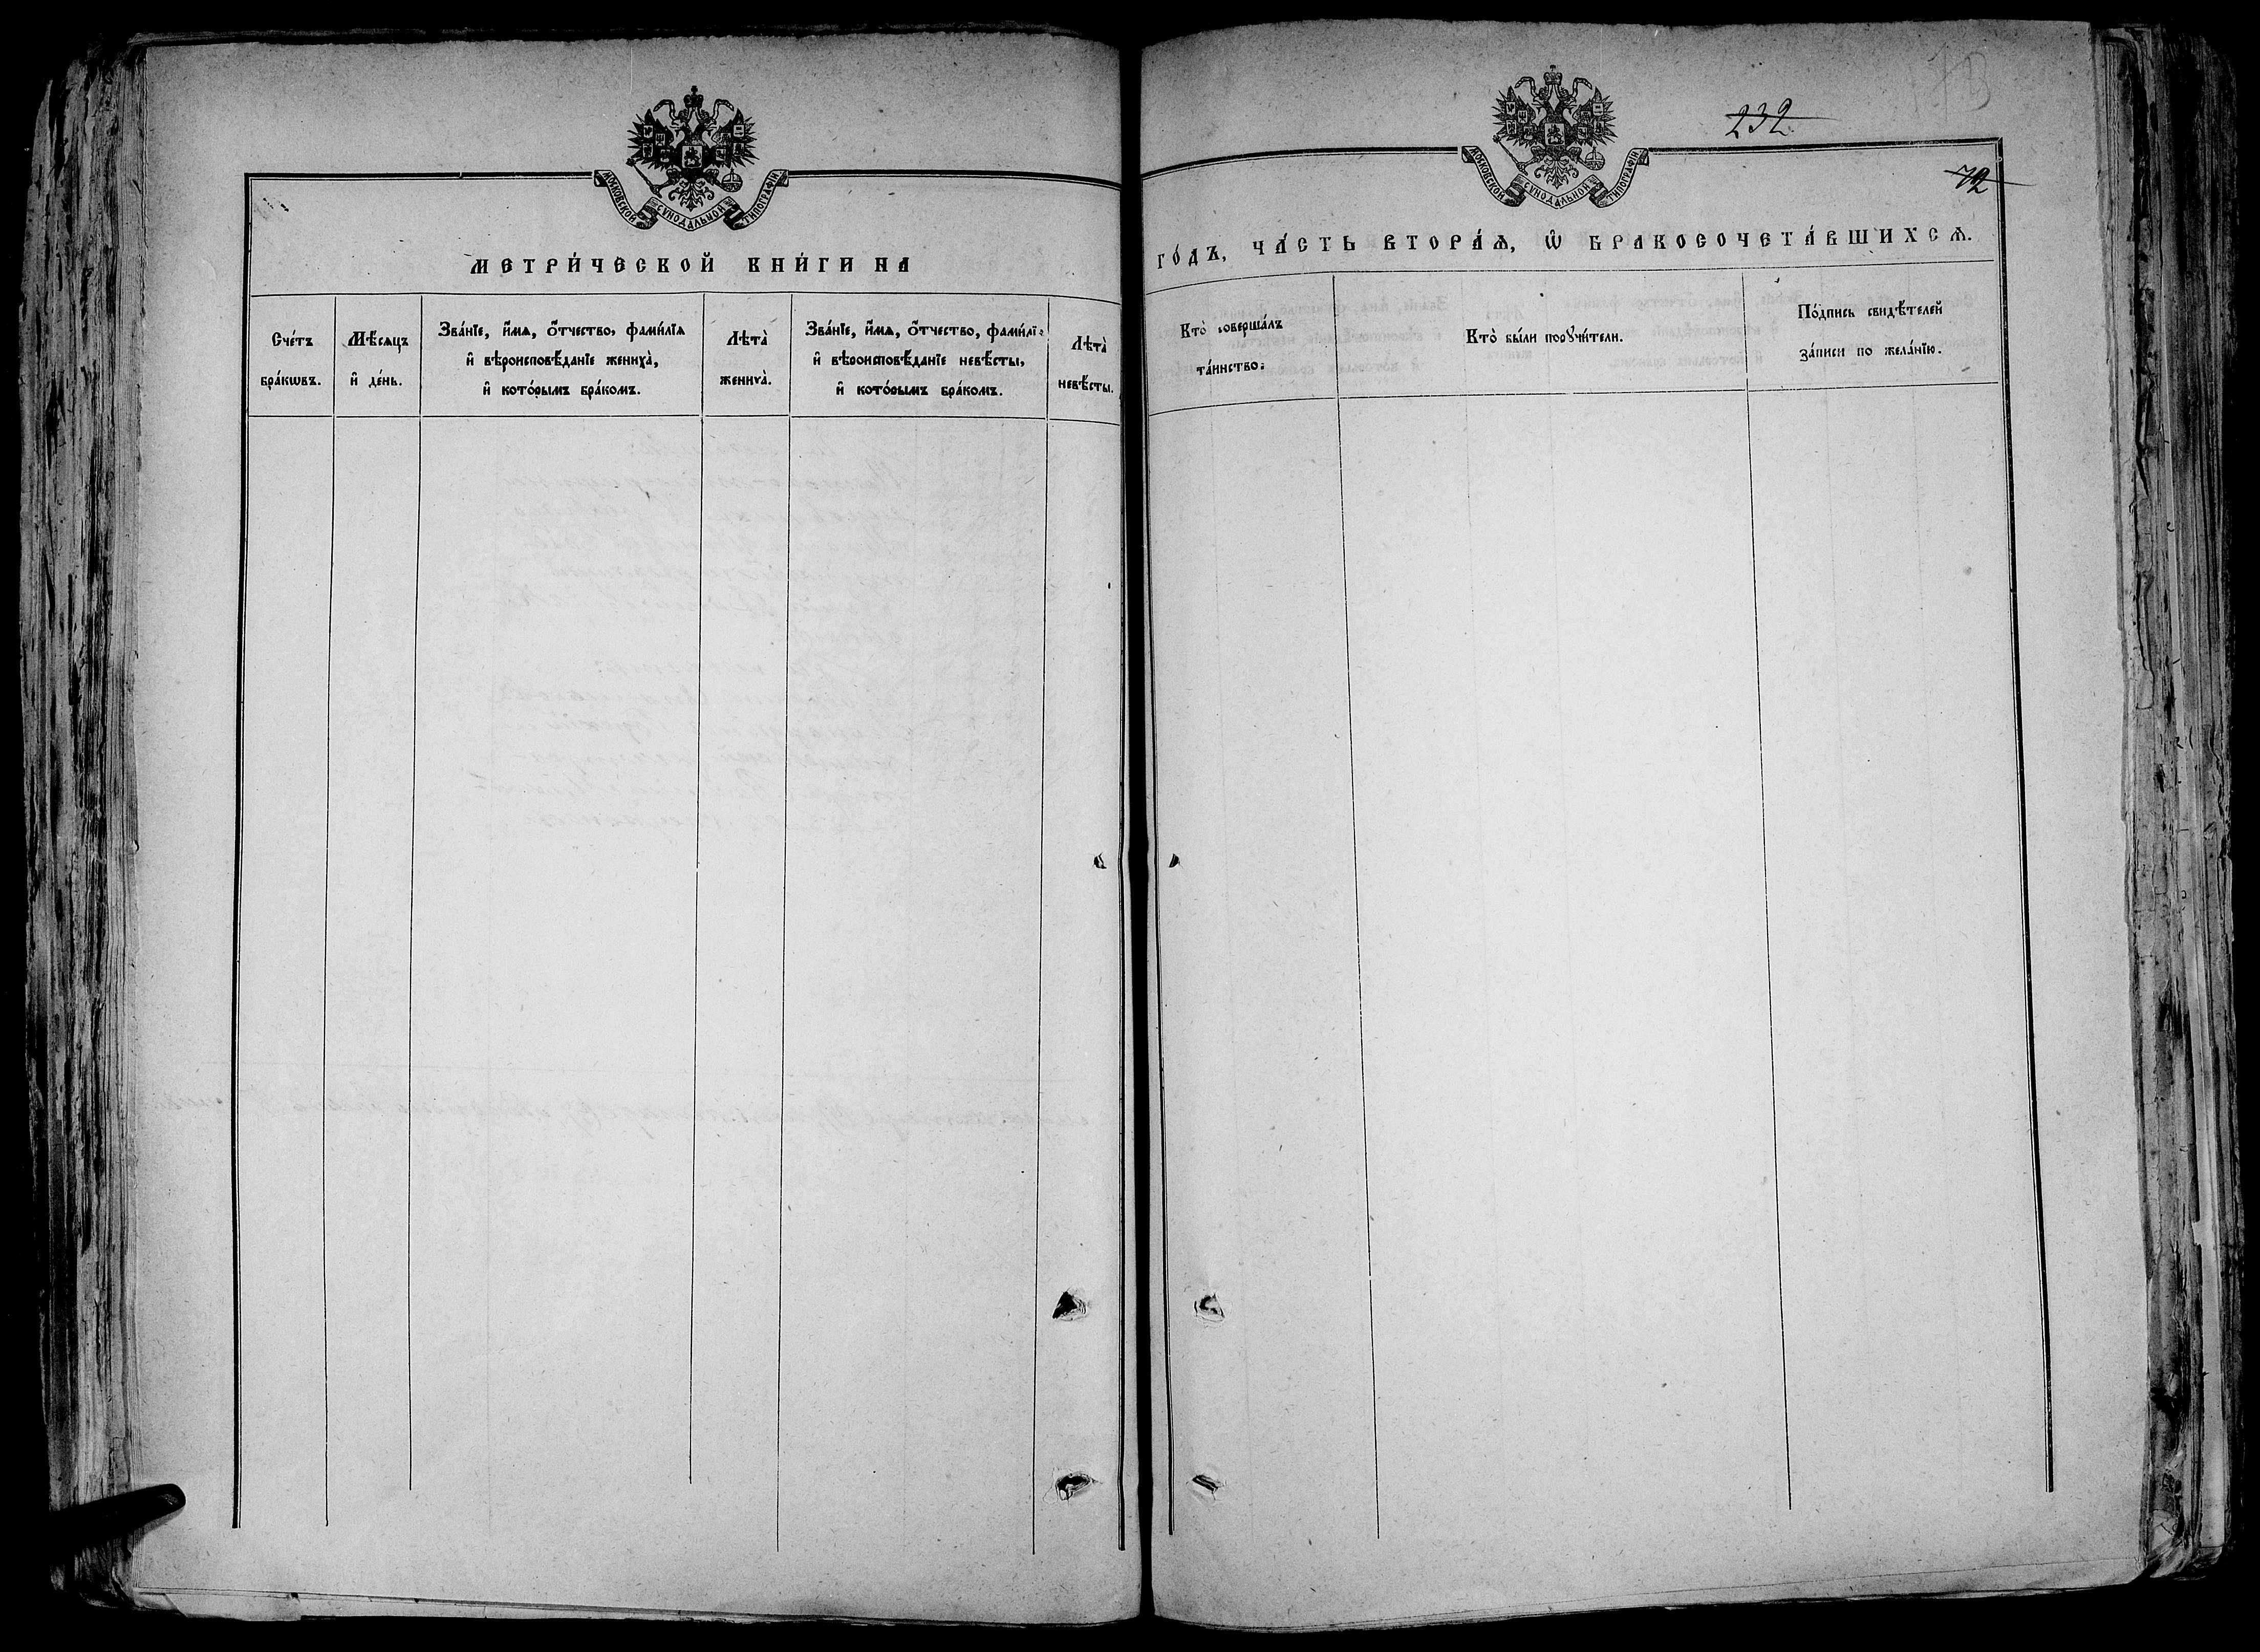 МОСКОВСКОЙ СУНОДАЛЬНОЙ ТИПОГРАФІИ
МЕТРИ́ЧЕСКОЙ КНИ́ГИ НА
Сче́тъ
бра́кѡвъ.
Мѣ́сяцъ
и҆ де́нь.
Зва́нїе, и҆́мѧ, ѻ҆́тчество, фами́лїѧ
и҆ вѣроисповѣ́данїе жениха̀,
и҆ кото́рымъ бра́комъ.
Лѣта̀
жениха̀.
Зва́нїе, и҆́мѧ, ѻ҆́тчество, фами́лї=
и҆ вѣроисповѣ́данїе невѣ́сты,
и҆ кото́рымъ бра́комъ.
Лѣта̀
невѣ́сты.
232
72
МОСКОВСКОЙ СУНОДАЛЬНОЙ ТИПОГРАФІИ
ГО́ДЪ, ЧА́СТЬ ВТОРА́Ѧ, Ѡ҆ БРАКОСОЧЕТА́ВШИХСѦ.
Кто̀ соверша́лъ
та́инство:
Кто̀ бы́ли порꙋчи́тели.
По́дпись свидѣ́телей
за́писи по жела́нїю.